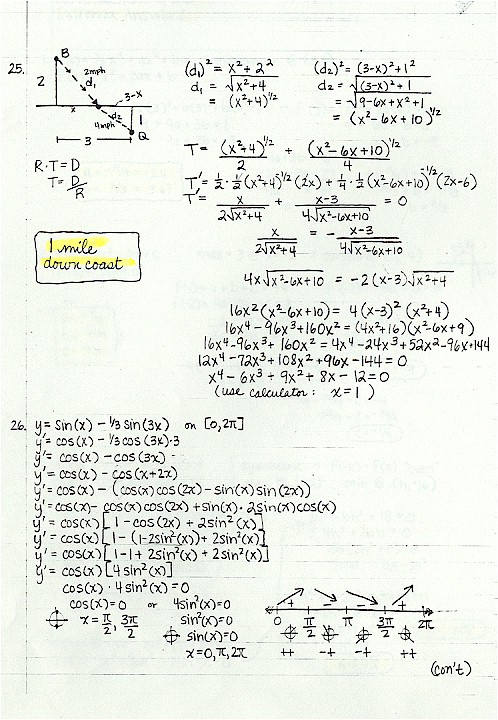 25.
B
2
2mph
d₁
x
3-x
d₂
4mph
1
Q
3
R·T=D
T=D/R
1 mile
down coast
(d₁)² = x² + 2²
d₁ = √(x²+4)
= (x²+4)^1/2
(d₂)² = (3-x)² + 1²
d₂ = √((3-x)²+1)
= √(9-6x+x²+1)
= (x²-6x+10)^1/2
T = (x²+4)^1/2 / 2 + (x²-6x+10)^1/2 / 4
T' = 1/2 · 1/2 (x²+4)^-1/2 (2x) + 1/4 · 1/2 (x²-6x+10)^-1/2 (2x-6)
T' = x / 2√(x²+4) + x-3 / 4√(x²-6x+10) = 0
x / 2√(x²+4) = - x-3 / 4√(x²-6x+10)
4x√(x²-6x+10) = -2(x-3)√(x²+4)
16x²(x²-6x+10) = 4(x-3)²(x²+4)
16x⁴-96x³+160x² = (4x²+16)(x²-6x+9)
16x⁴-96x³+160x² = 4x⁴-24x³+52x²-96x+144
12x⁴-72x³+108x²+96x-144=0
x⁴-6x³+9x²+8x-12=0
(use calculator: x=1)
26. y = sin(x) - 1/3 sin(3x) on [0,2π]
y' = cos(x) - 1/3 cos(3x)·3
y' = cos(x) - cos(3x)
y' = cos(x) - cos(x+2x)
y' = cos(x) - (cos(x)cos(2x) - sin(x)sin(2x))
y' = cos(x) - cos(x)cos(2x) + sin(x)·2sin(x)cos(x)
y' = cos(x)[1-cos(2x)+2sin²(x)]
y' = cos(x)[1-(1-2sin²(x))+2sin²(x)]
y' = cos(x)[1-1+2sin²(x)+2sin²(x)]
y' = cos(x)[4sin²(x)]
cos(x)·4sin²(x)=0
cos(x)=0 or 4sin²(x)=0
x = π/2, 3π/2 sin²(x)=0
sin(x)=0
x=0,π,2π
+ - - +
0 π/2 π 3π/2 2π
++ -+ -+ ++
(con't)